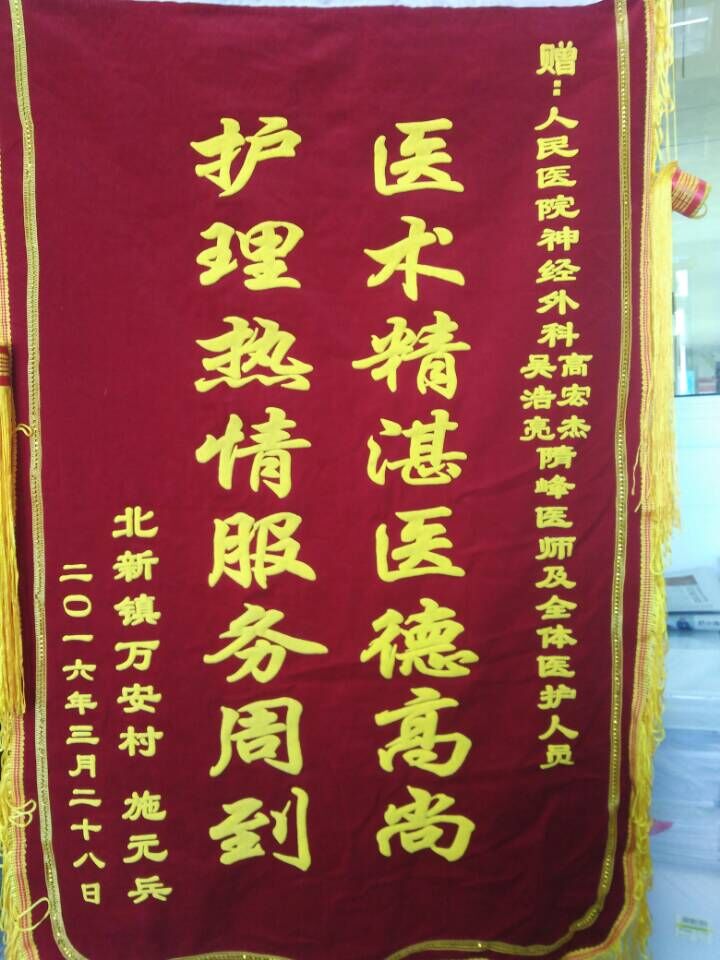 赠：人民医院神经外科高宏杰吴浩亮隋峰医师及全体医护人员
医术精湛医德高尚
护理热情服务周到
北新镇万安村 施元兵
二〇一六年三月二十八日